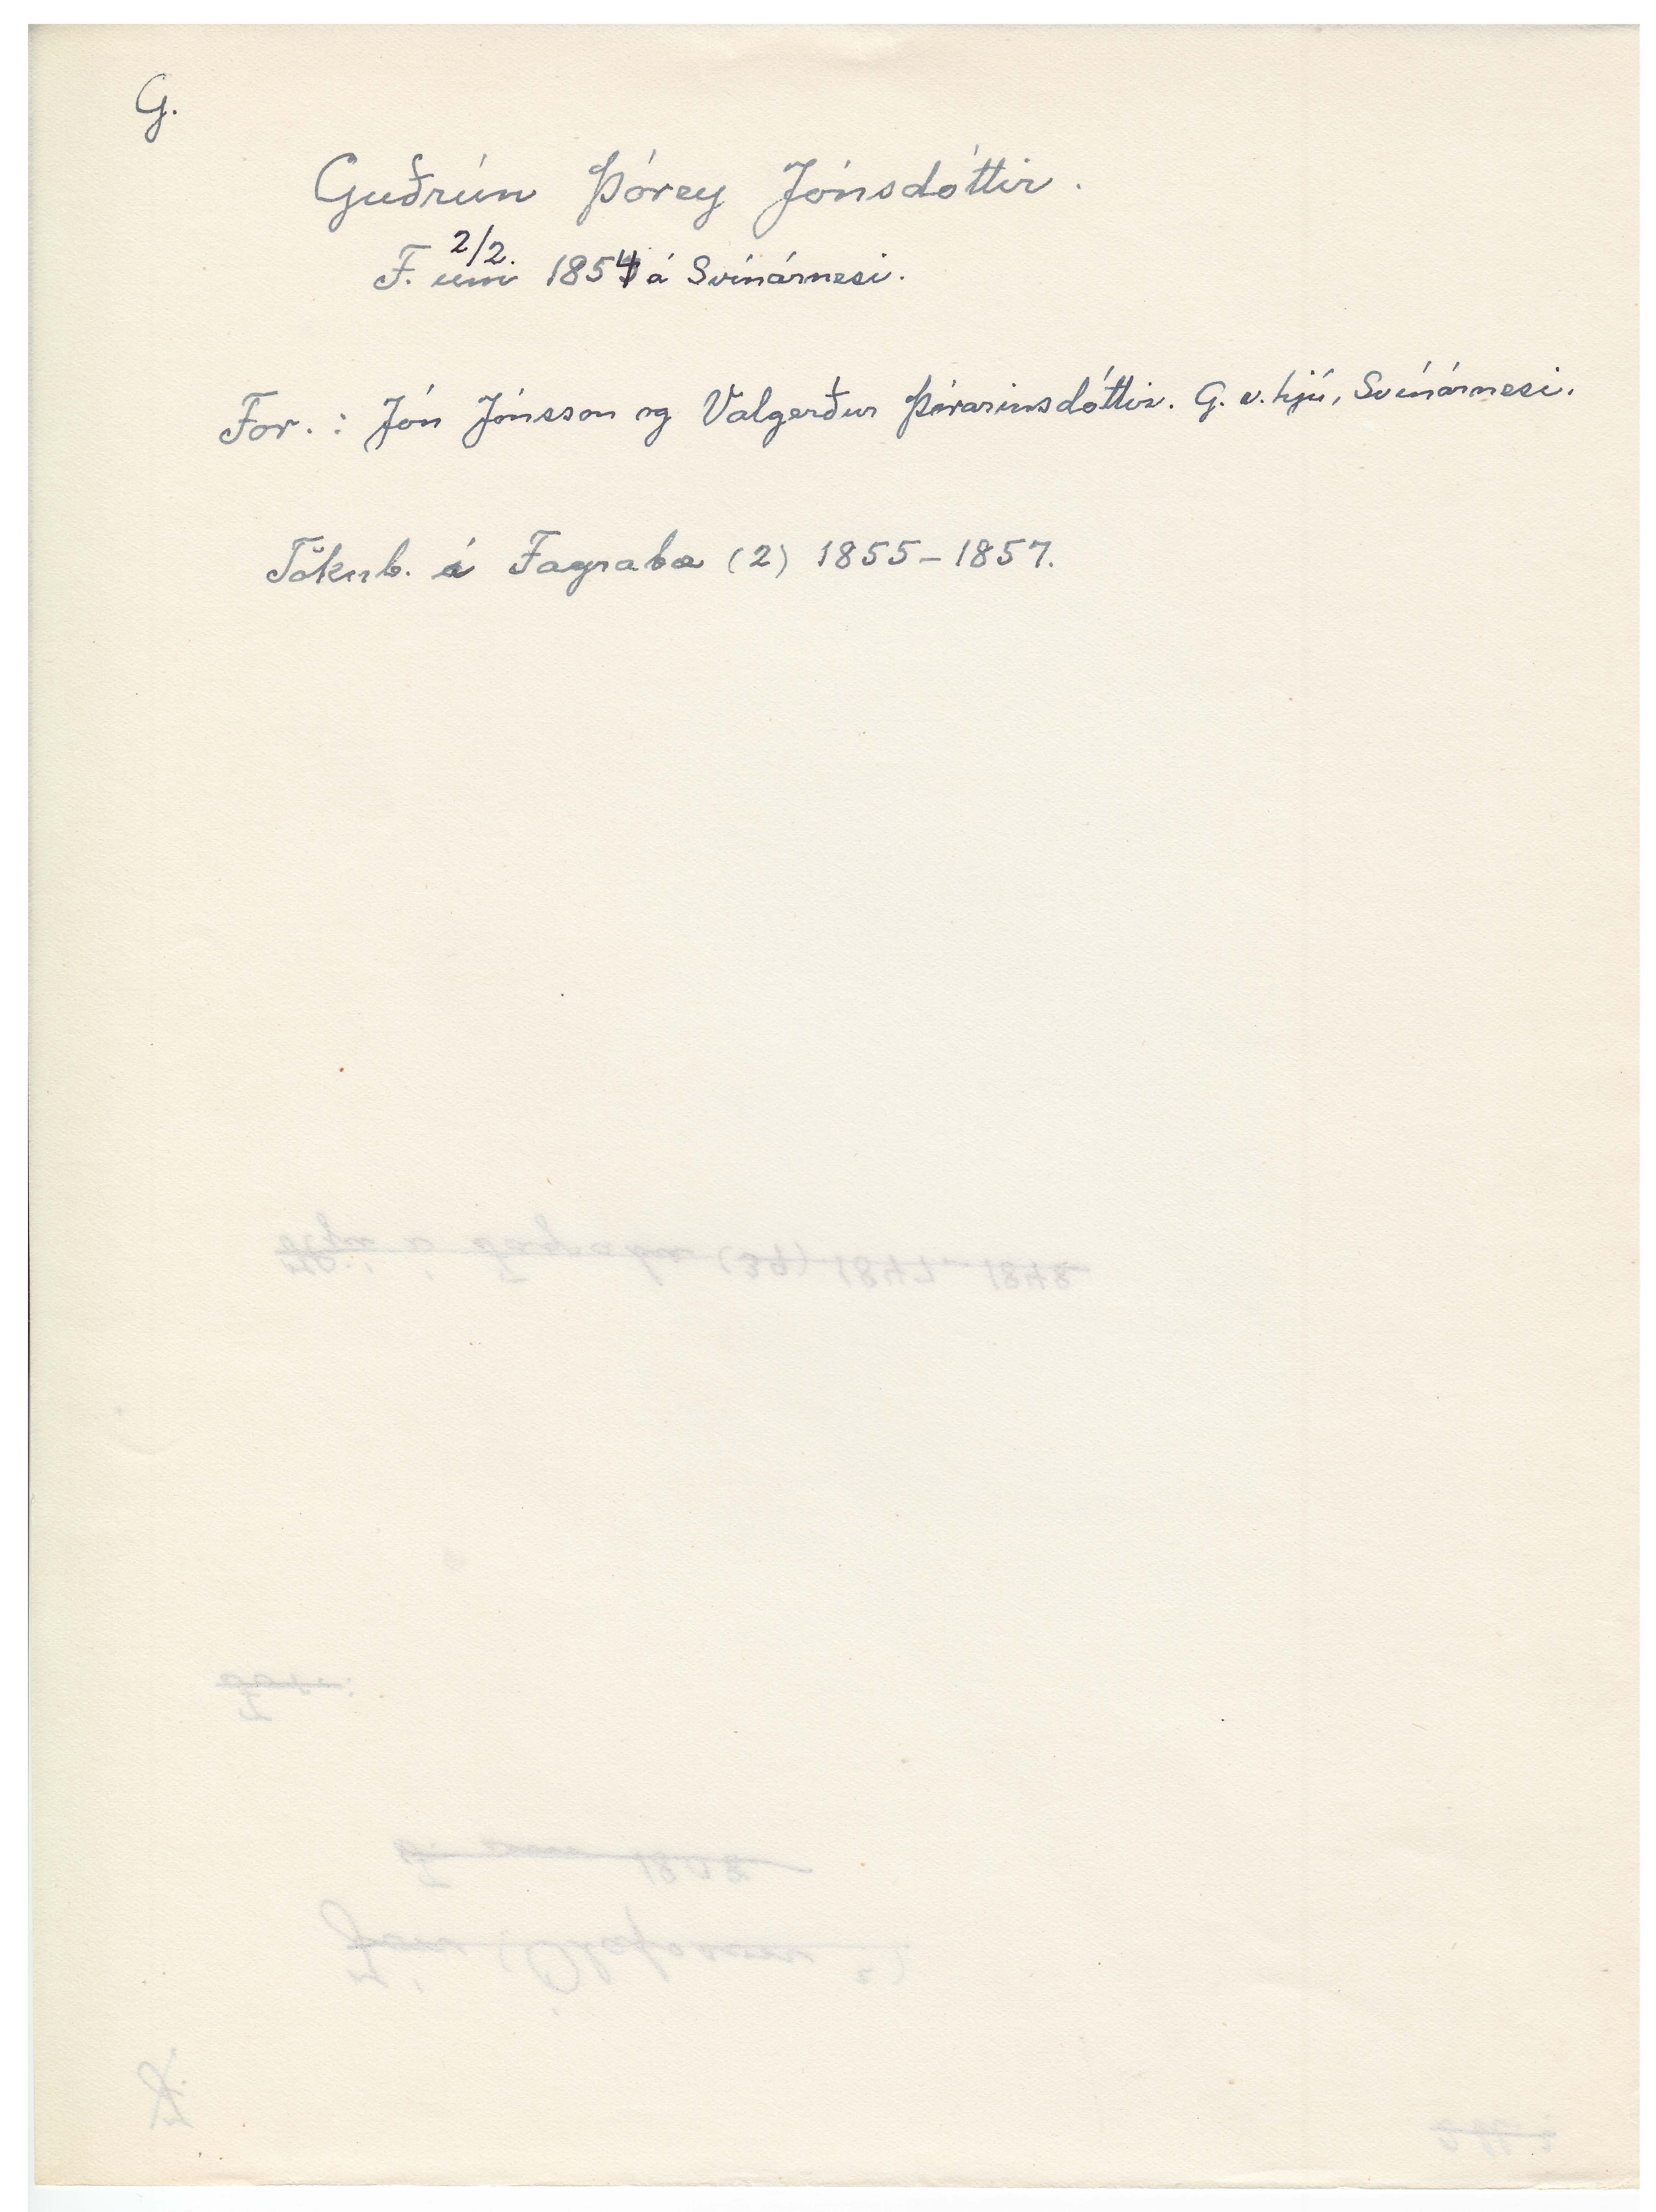 G.
Guðrún Þórey Jónsdóttir.
2/2.
F. um 1854 á Svínárnesi.
For. : Jón Jónsson og Valgerður Þórarinsdóttir. G. v. hjú, Svínárnesi.
Tökub. á Fagrabæ (2) 1855-1857.